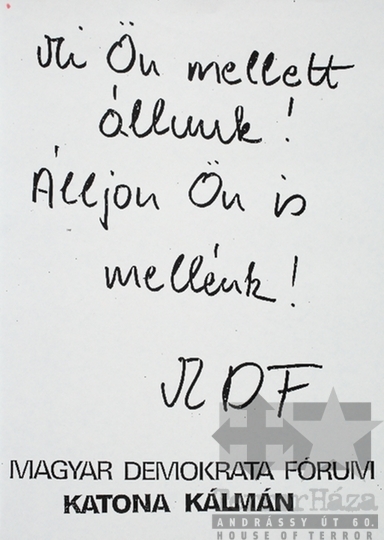 Mi Ön mellett
állunk!
Álljon Ön is
mellénk!
MDF
MAGYAR DEMOKRATA FÓRUM
KATONA KÁLMÁN
TerrorHáza
ANDRÁSSY ÚT 60.
HOUSE OF TERROR